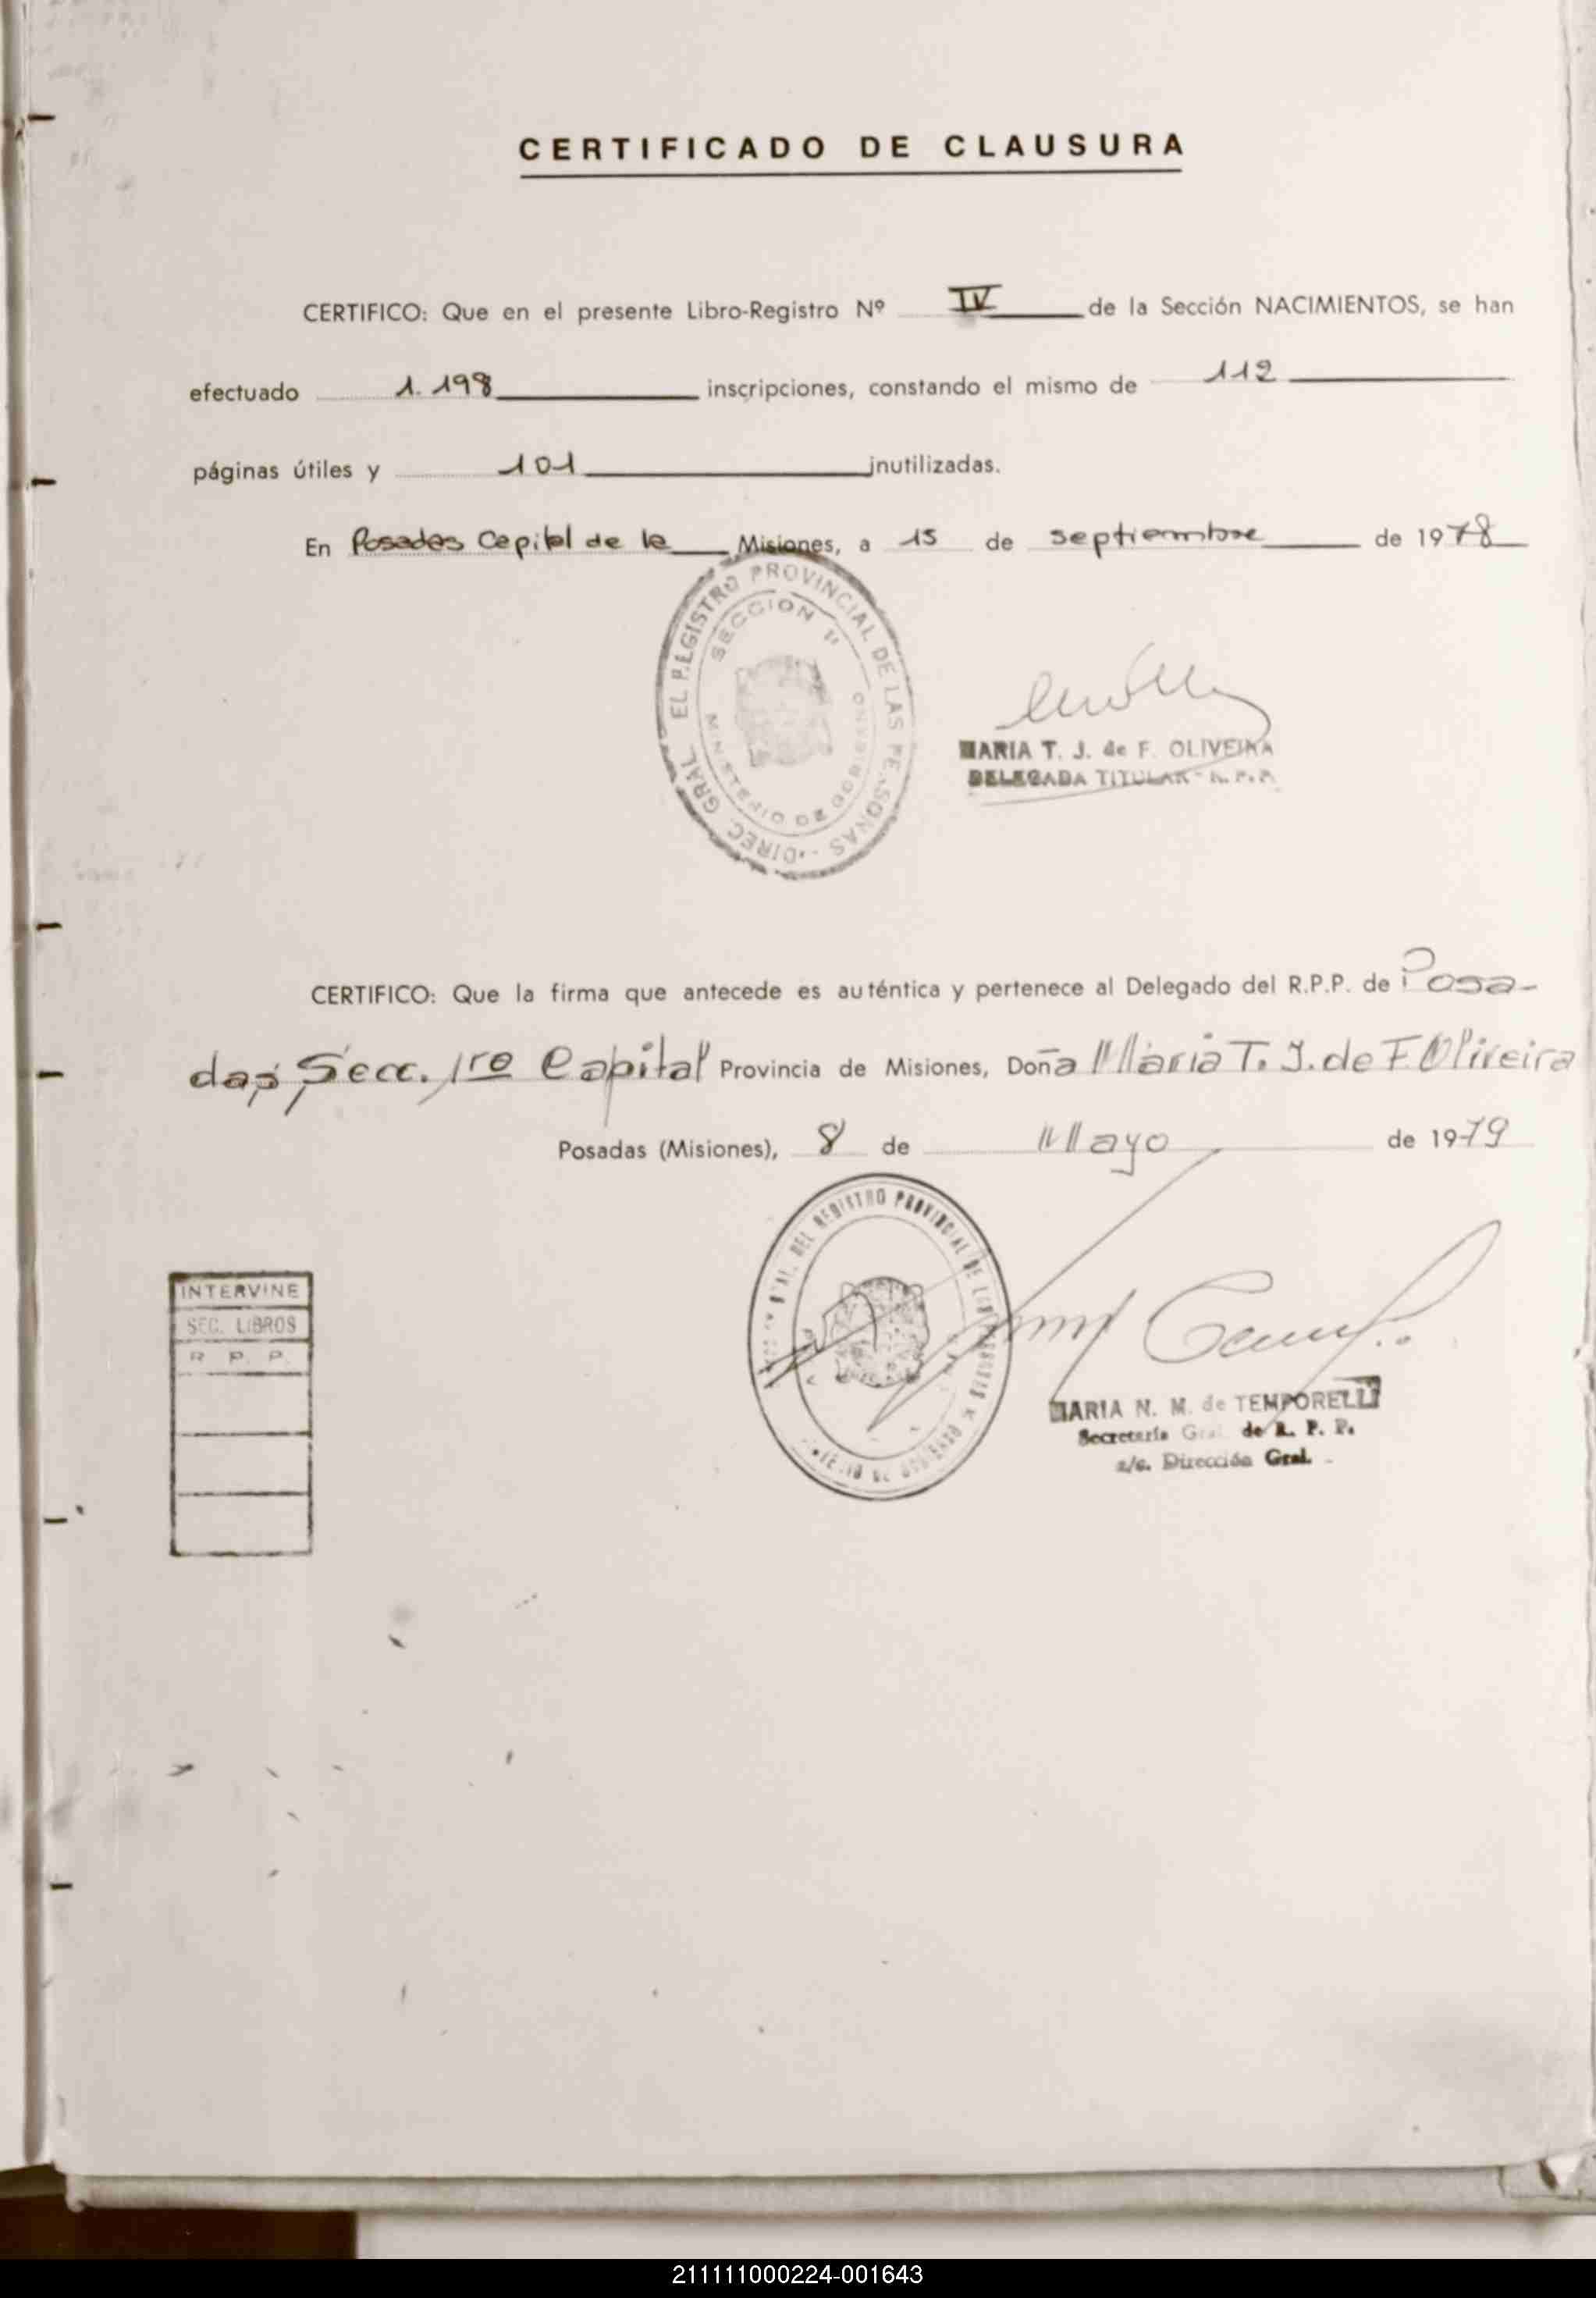 CERTIFICADO DE CLAUSURA
CERTIFICO: Que en el presente Libro-Registro Nº IV de la Sección NACIMIENTOS, se han
efectuado 1.198 inscripciones, constando el mismo de 112
páginas útiles y 101 inutilizadas.
En Posadas Capital de la Misiones, a 15 de septiembre de 1978
DIREC. GRAL. EL REGISTRO PROVINCIAL DE LAS PERSONAS
SECCION 1ª
MINISTERIO DE GOBIERNO
MARIA T. J. de F. OLIVEIRA
DELEGADA TITULAR - R.P.P.
CERTIFICO: Que la firma que antecede es auténtica y pertenece al Delegado del R.P.P. de Posa-
das, Secc. 1ra Capital Provincia de Misiones, Doña Maria T. J. de F. Oliveira
Posadas (Misiones), 8 de Mayo de 1979
GRAL. DEL REGISTRO PROVINCIAL DE LAS PERSONAS
INTERVINE
SEC. LIBROS
R. P. P.
MARIA N. M. de TEMPORELLI
Secretaria Gral. de R. P. P.
a/c. Dirección Gral.
211111000224-001643